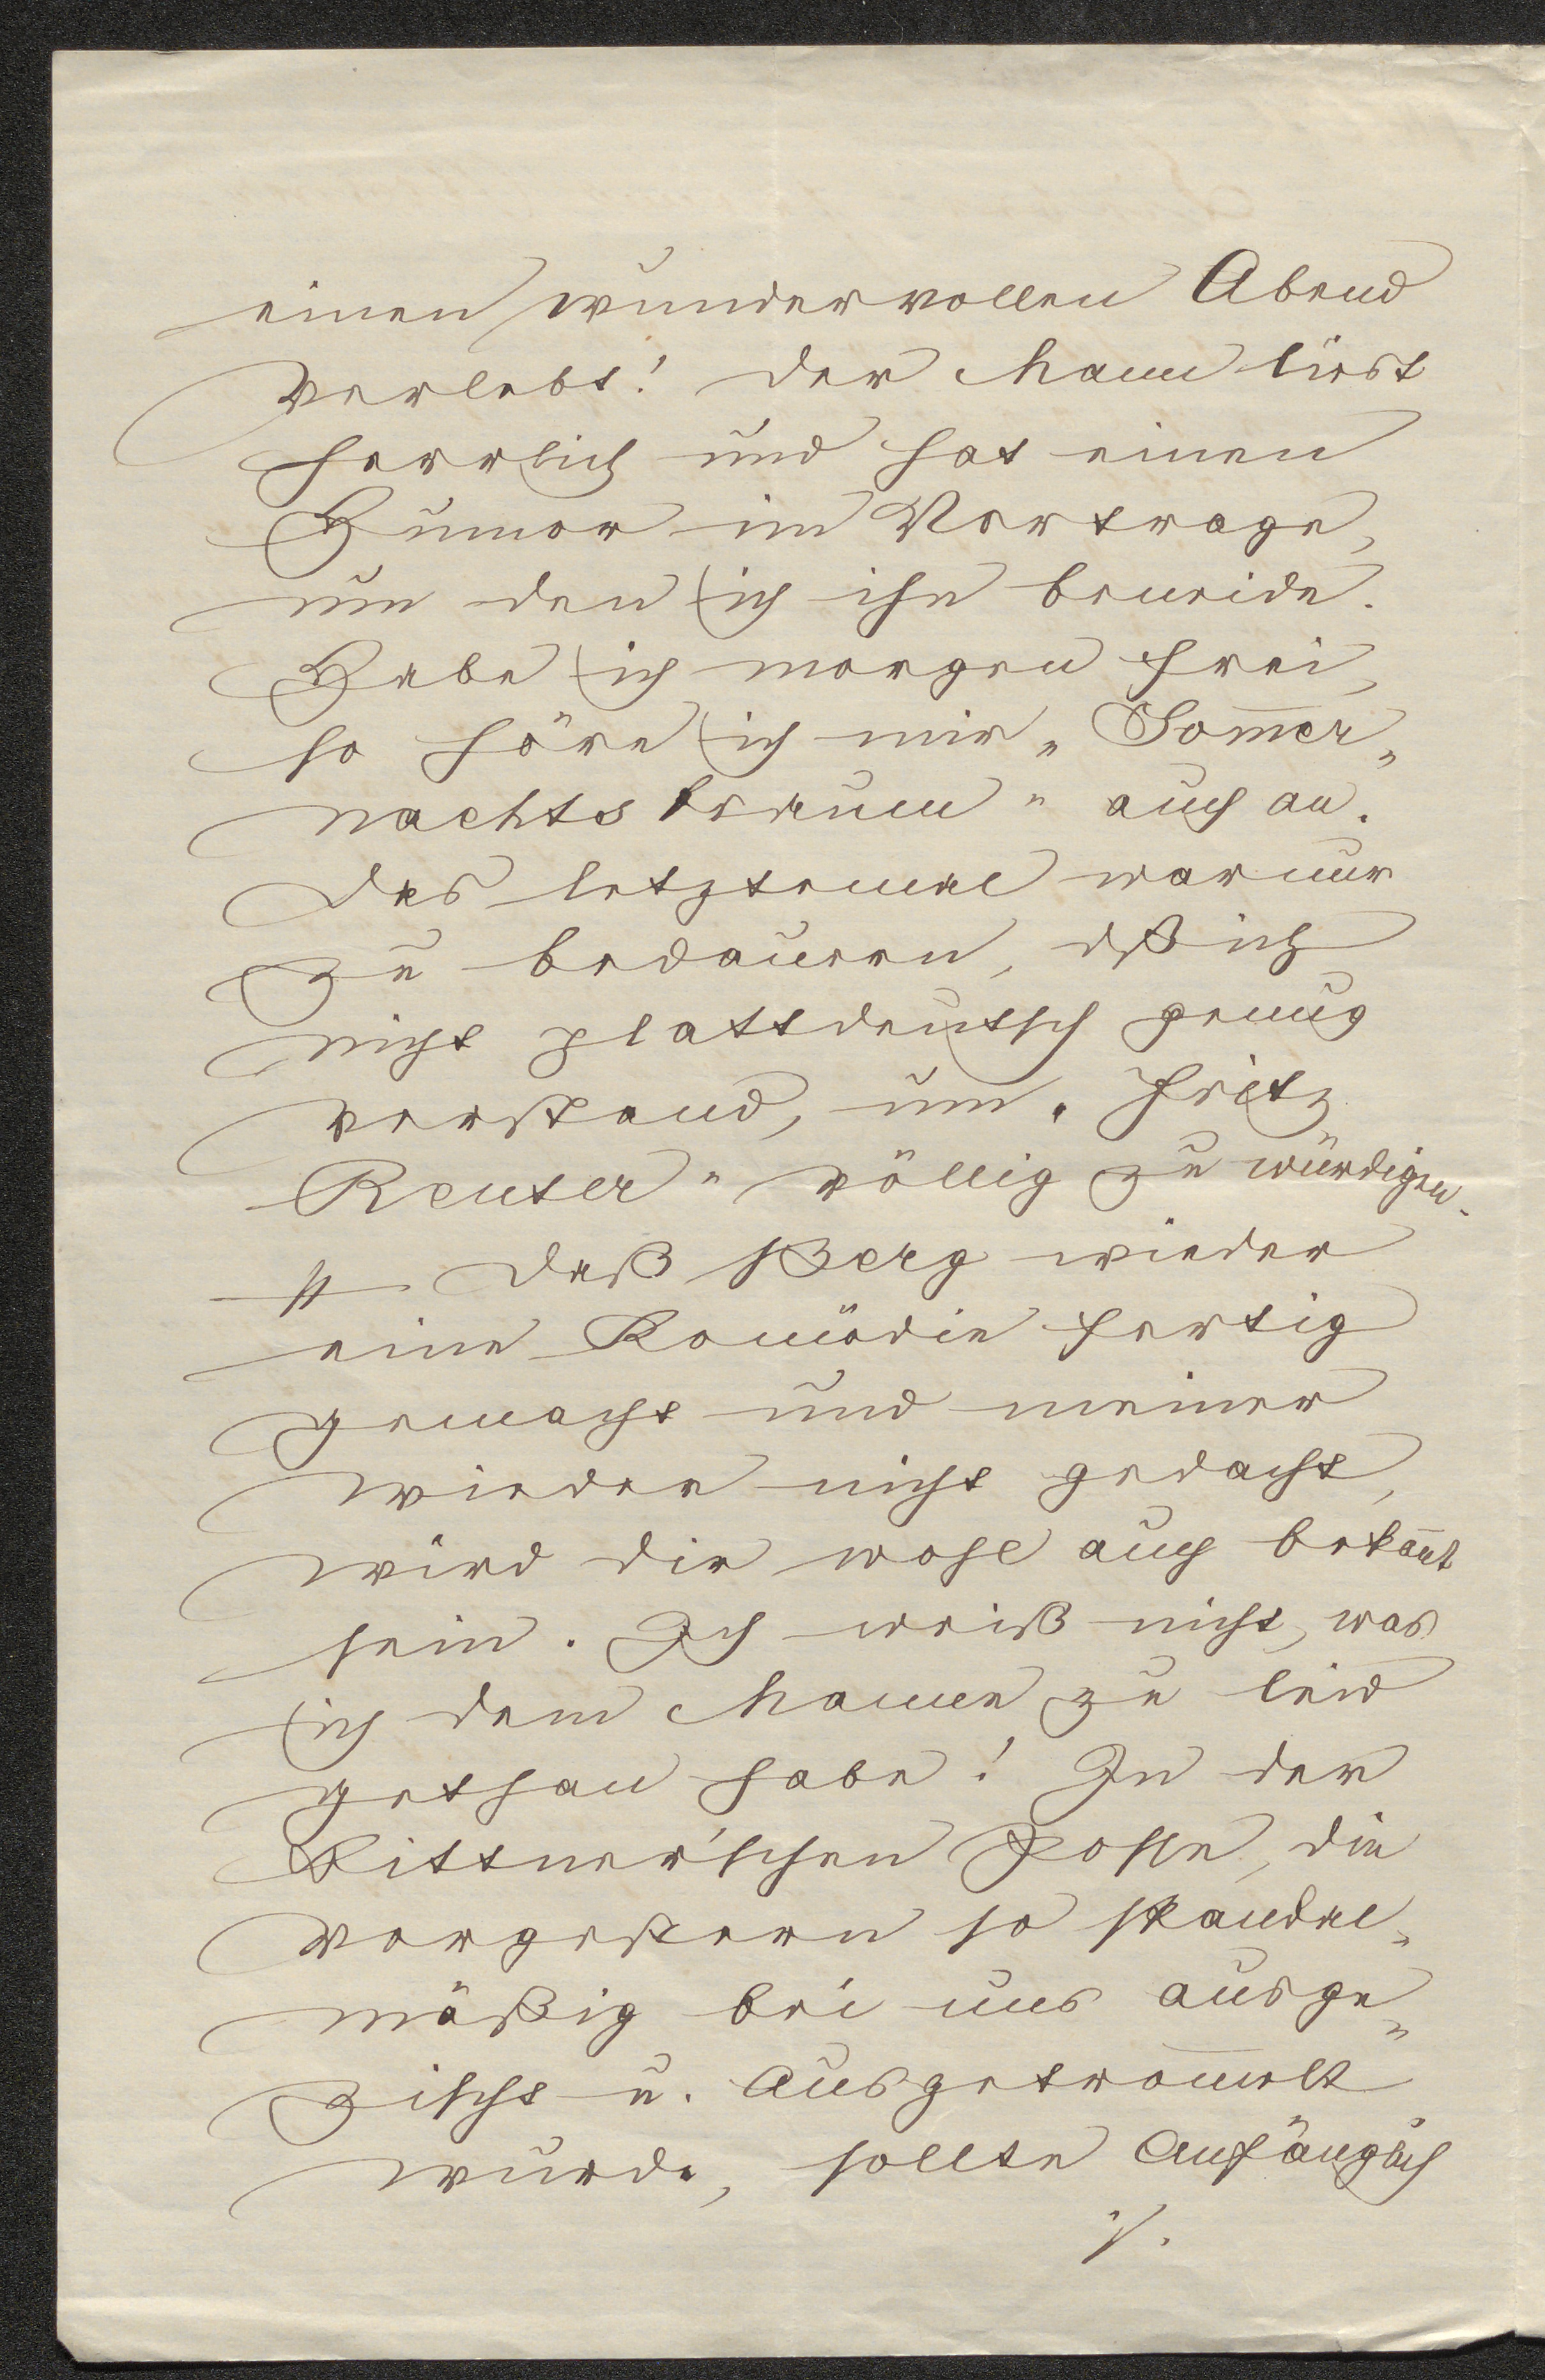 einen wundervollen Abend
verlebt! Der Mann liest
herrlich und hat einen
Humor im Vortrage,
um den ich ihn beneide.
Habe ich morgen frei,
so höre ich mir „Som̅er„
nachtstraum" auch an.
Das letztemal war nur
zu bedauern, dß ich
nicht plattdeutsch genug
verstand, um „Fritz
Reuter" völlig zu würdigen.
// Daß Berg wieder
eine Komödie fertig
gemacht und meiner
wieder nicht gedacht,
wird dir wohl auch bekan̅t
sein. Ich weiß nicht, was
ich dem Manne zu leid
gethan habe! In der
Bittner'schen Posse, die
vorgestern so skandal„
mäßig bei uns ausge„
zischt u. ausgetrom̅elt
wurde, sollte anfänglich
./.